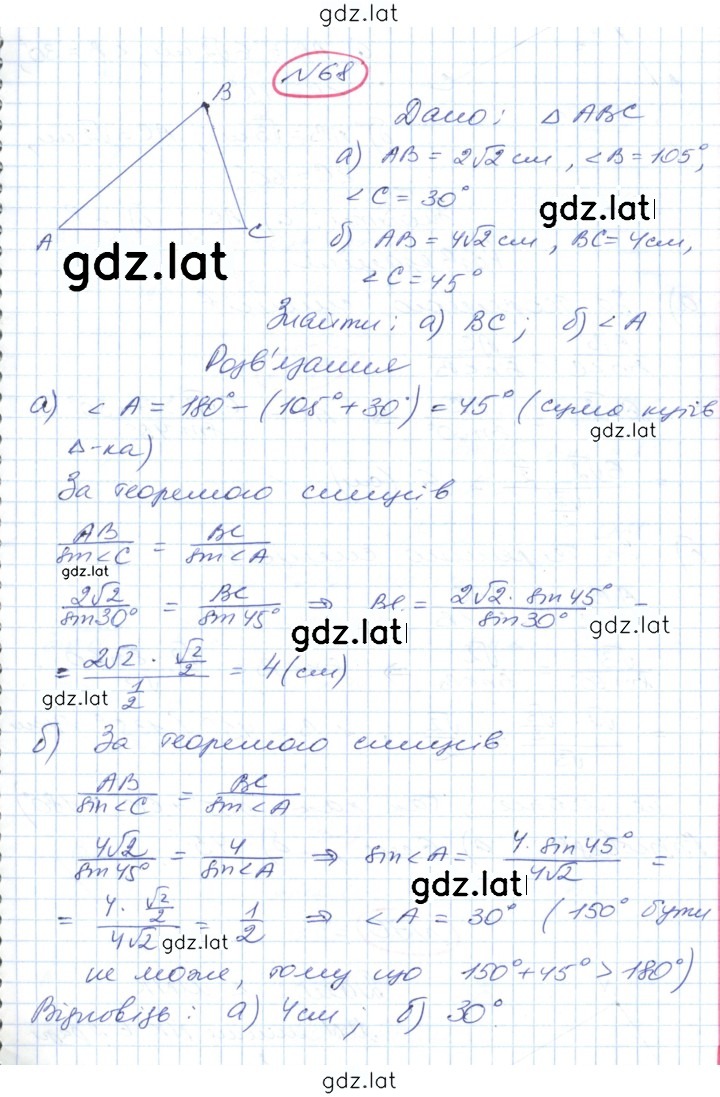 gdz.lat
№68
B
Дано: △ ABC
а) AB = 2√2 см, <B = 105°,
<C = 30°
gdz.lat
A
C
б) AB = 4√2 см, BC = 4 см,
gdz.lat
<C = 45°
Знайти: а) BC; б) <A
Розв'язання
а) <A = 180° - (105° + 30°) = 45° (сума кутів
gdz.lat
△-ка)
За теоремою синусів
AB/sin<C = BC/sin<A
gdz.lat
2√2/sin30° = BC/sin45° ⇒ BC = 2√2 · sin45°/sin30° =
gdz.lat
gdz.lat
= 2√2 · √2/2 / 1/2 = 4 (см)
gdz.lat
б) За теоремою синусів
AB/sin<C = BC/sin<A
4√2/sin45° = 4/sin<A ⇒ sin<A = 4 · sin45°/4√2 =
gdz.lat
= 4 · √2/2 / 4√2 = 1/2 ⇒ <A = 30° (150° бути
gdz.lat
не може, тому що 150° + 45° > 180°)
Відповідь: а) 4 см; б) 30°
gdz.lat